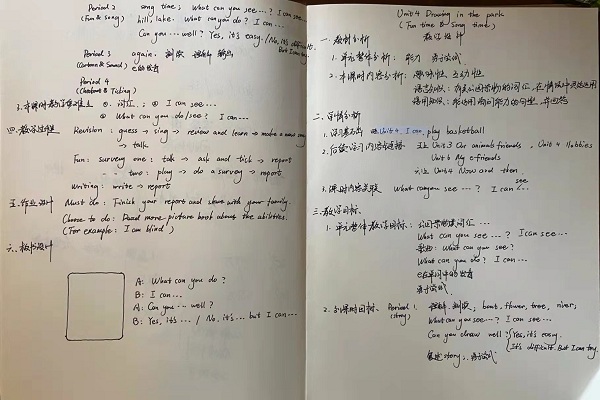 Period 2 song time; What can you see? I can see...
(Fun & song) hill, lake. What can you do? I can...
Can you... well? Yes, it's easy./No, it's difficult.
But I can try.
Period 3 again.
(Cartoon & Sound) e的发音
Period 4
(Checkout & Ticking)
3.本课时教学重难点 ①. 词汇; ② I can see...
② What can you do/see? I can...
四.教学过程 Revision: guess → sing → review and learn → make a new song
→ talk
Fun: survey one: talk → ask and tick → report
two: play → do a survey → report
Writing: write → report
五.作业设计 Must do: Finish your report and share with your family.
Choose to do: Read more picture book about the abilities.
(For example: I am blind)
六.板书设计
A: What can you do?
B: I can...
A: Can you... well?
B: Yes, it's... / No, it's... but I can...
Unit 4 Drawing in the park
(Fun time & Song time)
教学设计
一.教材分析
1.单元整体分析:能力
2.本课时内容分析:趣味性,互动性
二.学情分析
1.学习基础 Unit 4 I can play basketball
2.后续学习内容与连接 五上 Unit 3 Our animal friends, Unit 4 Hobbies
Unit 6 My e-friends
六上 Unit 4 Now and then
3.课时内容关联 What can you see...? I can see...
三.教学目标
1.单元整体教学目标:公园景物类词汇...
What can you see...? I can see...
歌曲: What can you see?
What can you do? I can...
e在单词中的发音
2.分课时目标 Period 1 boat, flower, tree, river;
(story) What can you see...? I can see...
Can you draw well? Yes, it's easy.
It's difficult. But I can try.
story;